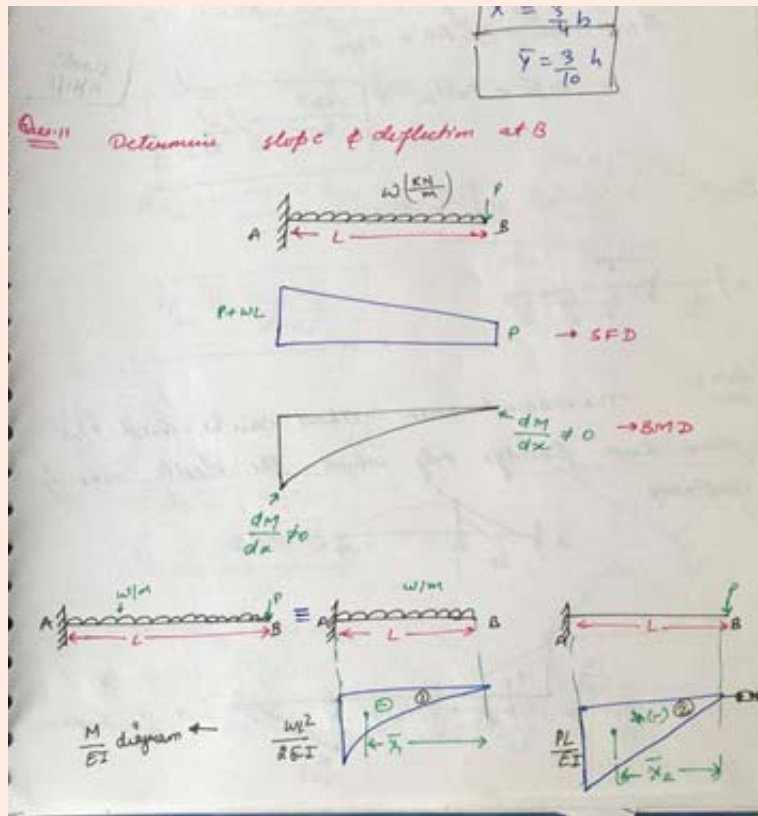 x̄ = 3/4 b
ȳ = 3/10 h
Ques.11 Determine slope & deflection at B
w(KN/m) P
A L B
P+WL
P → SFD
dM/dx ≠ 0 → BMD
dM/dx ≠ 0
w/m P
A L B
≡
w/m
A L B
P
A L B
M/EI diagram ←
WL²/2EI
① x̄₁
PL/EI
(-) ②
x̄₂